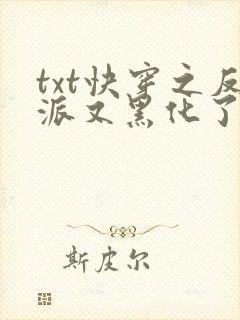 txt快穿之反
派又黑化了
斯皮尔